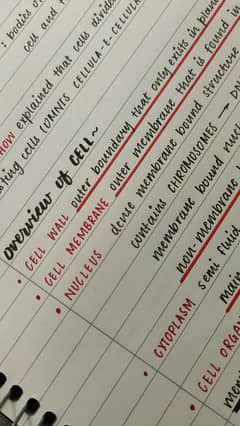 : bodies of
cell and th
HOW explained that cells divided
isting cells (OMNIS CELLULA-E-CELLULA
overview of CELL~
• CELL WALL outer boundary that only exists in plan
• CELL MEMBRANE outer membrane that is found in
• NUCLEUS dense membrane bound structure
contains CHROMOSOMES → D
membrane bound nucl
non-membrane
• CYTOPLASM semi fluid
main
• CELL ORGA